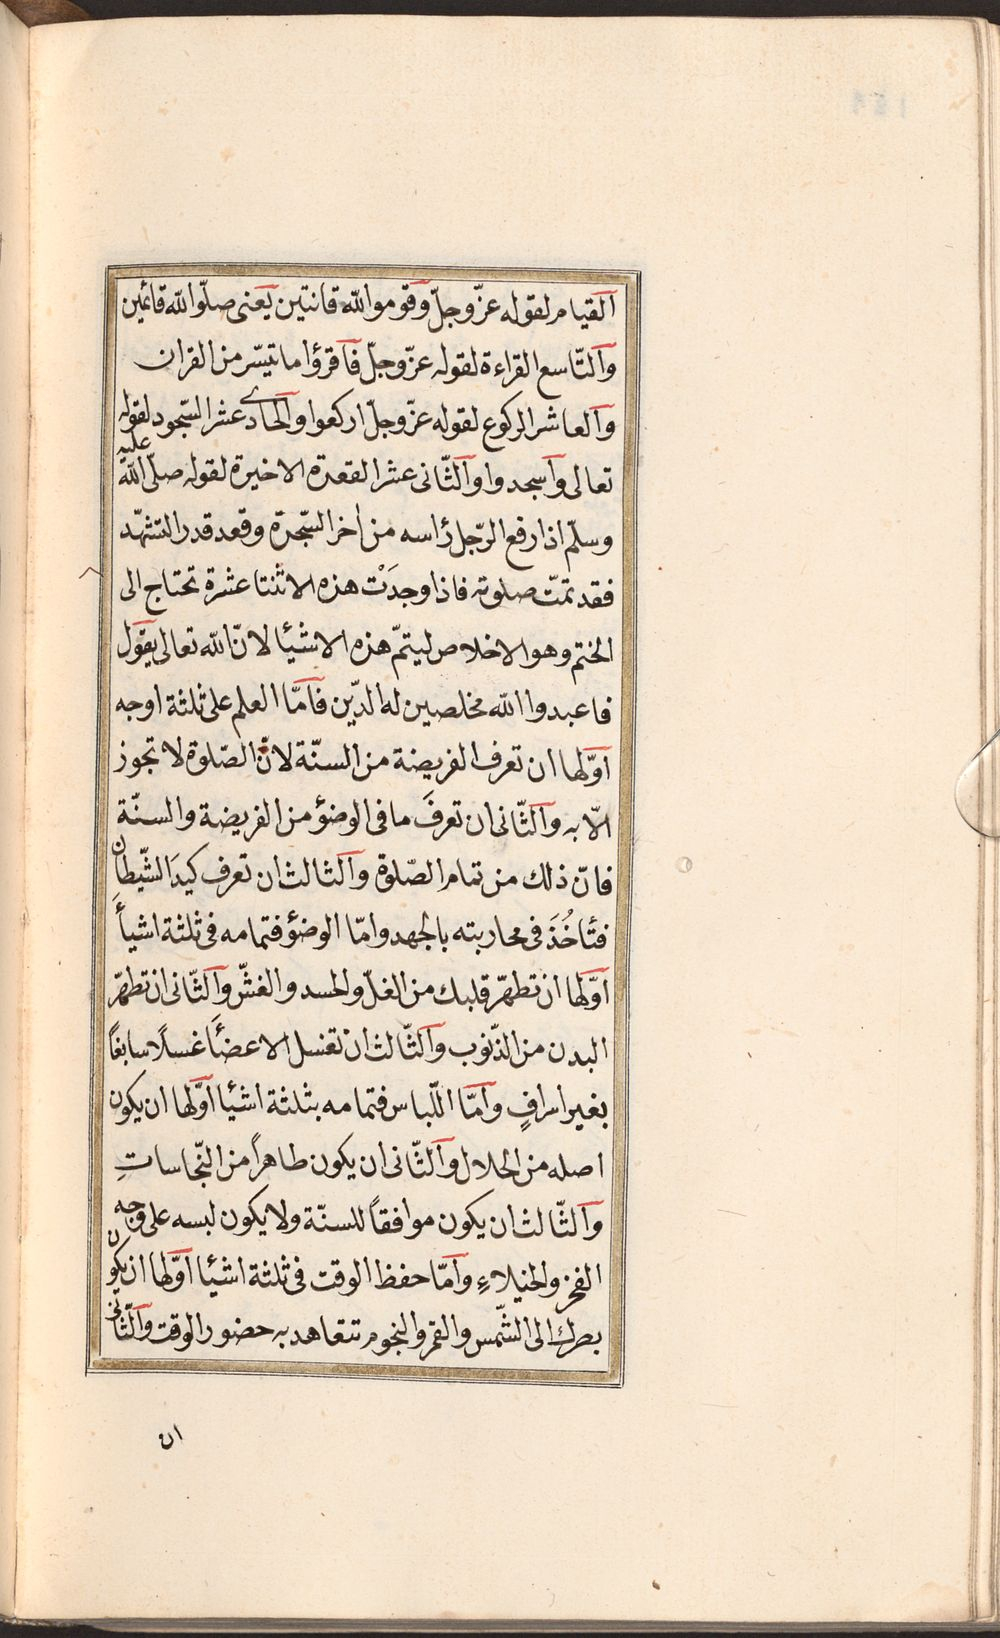 القيام لقوله عزّ وجلّ وقوموا لله قانتين يعنى صلّوا لله قائمين
والتّاسع القراءة لقوله عزّ وجلّ فاقرؤا ما تيسّر من القران
والعاشر الركوع لقوله عزّ وجلّ اركعوا والحادى عشر السّجود لقوله
تعالى واسجدوا والثّانى عشر القعدة الاخيرة لقوله صلّى الله عليه
وسلّم اذا رفع الرّجل رأسه من اخر السّجدة وقعد قدر التشهّد
فقد تمّت صلوته فاذا وجدَتْ هذه الاثنتا عشرة تحتاج الى
الختم وهو الاخلاص ليتمّ هذه الاشئا لانّ الله تعالى يقول
فاعبدوا الله مخلصين له الدّين فامّا العلم على ثلثة اوجه
اوّلها ان تعرف الفريضة من السنّة لانّ الصّلوة لا تجوز
الّا به والثّانى ان تعرفَ ما فى الوضؤ من الفريضة والسنّة
فانّ ذلك من تمام الصّلوة والثالث ان تعرف كيدَ الشّيطان
فتَأخُذَ فى محاربته بالجهد وامّا الوضؤ فتمامه فى ثلثة اشيأَ
اوّلها ان تطهّر قلبك من الغلّ والحسد والغشّ والثّانى ان تطهّر
البدن من الذّنوب والثّالث ان تغسل الاعضأَ غسلًا سابغًا
بغير اسرافٍ وامّا اللّباس فتمامه بثلثة اشئا اوّلها ان يكون
اصله من الحلال والثّانى ان يكون طاهراً من النّجاساتِ
والثّالث ان يكون موافقاً للسنّة ولا يكون لبسه على وجه
الفخر والخيلاءِ وامّا حفظ الوقت فى ثلثة اشئا اوّلها ان يكون
بصرك الى الشّمس والقمر والنجوم تتعاهد به حضور الوقت والثّانى
ان